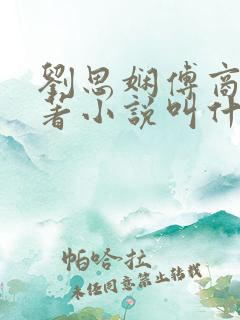 劉思娴傅商
著小説叫什
帕哈拉
未经同意禁止转载